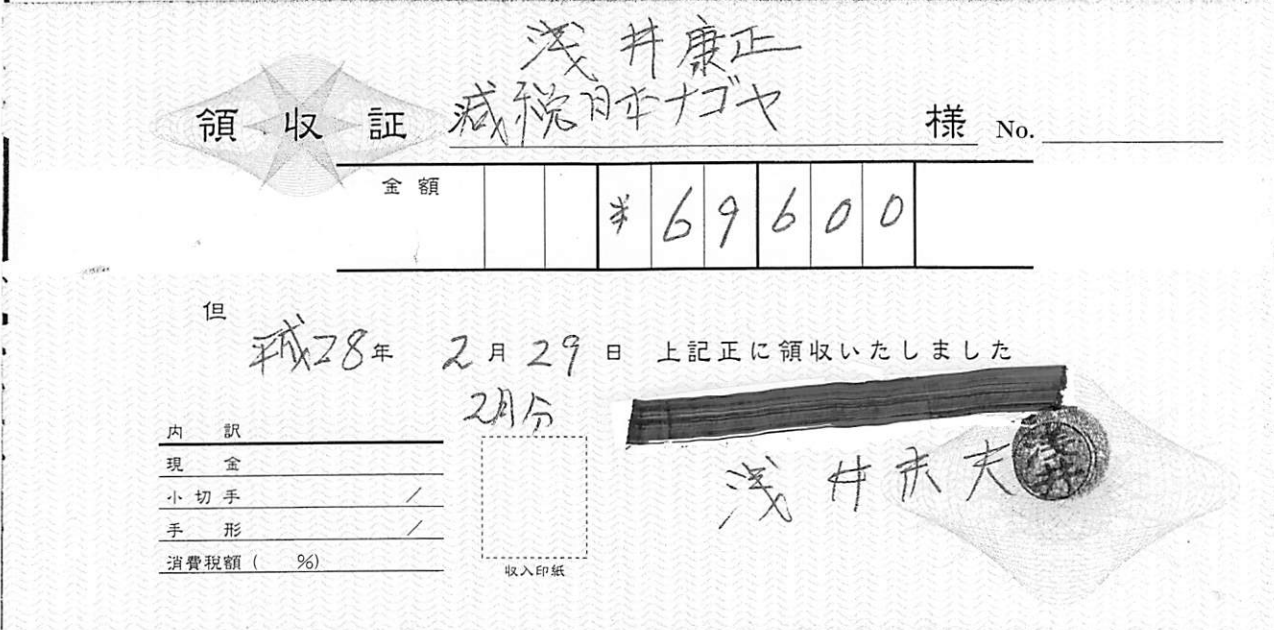 浅井康正
領収証 減税日本ナゴヤ 様 No.
金額 ¥69600
但
平成28年 2月29日 上記正に領収いたしました
2月分
内訳
現金
小切手 /
手形 /
消費税額( %)
収入印紙
浅井 夫
浅井